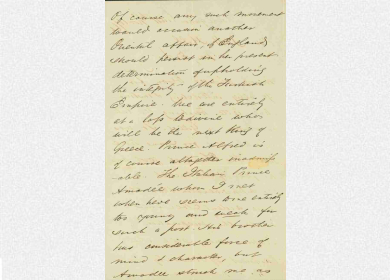 Of course any such movement
would occasion another
Oriental affair, if England
should persist in her present
determination of upholding
the integrity of the Turkish
Empire. We are entirely
at a loss to divine who
will be the next King of
Greece. Prince Alfred is
of course altogether inadmiss
-able. The Italian Prince
Amadée whom I met
when here seems to me entirely
too young and weak for
such a post. His brother
has considerable force of
mind & character, but
Amadée struck me as